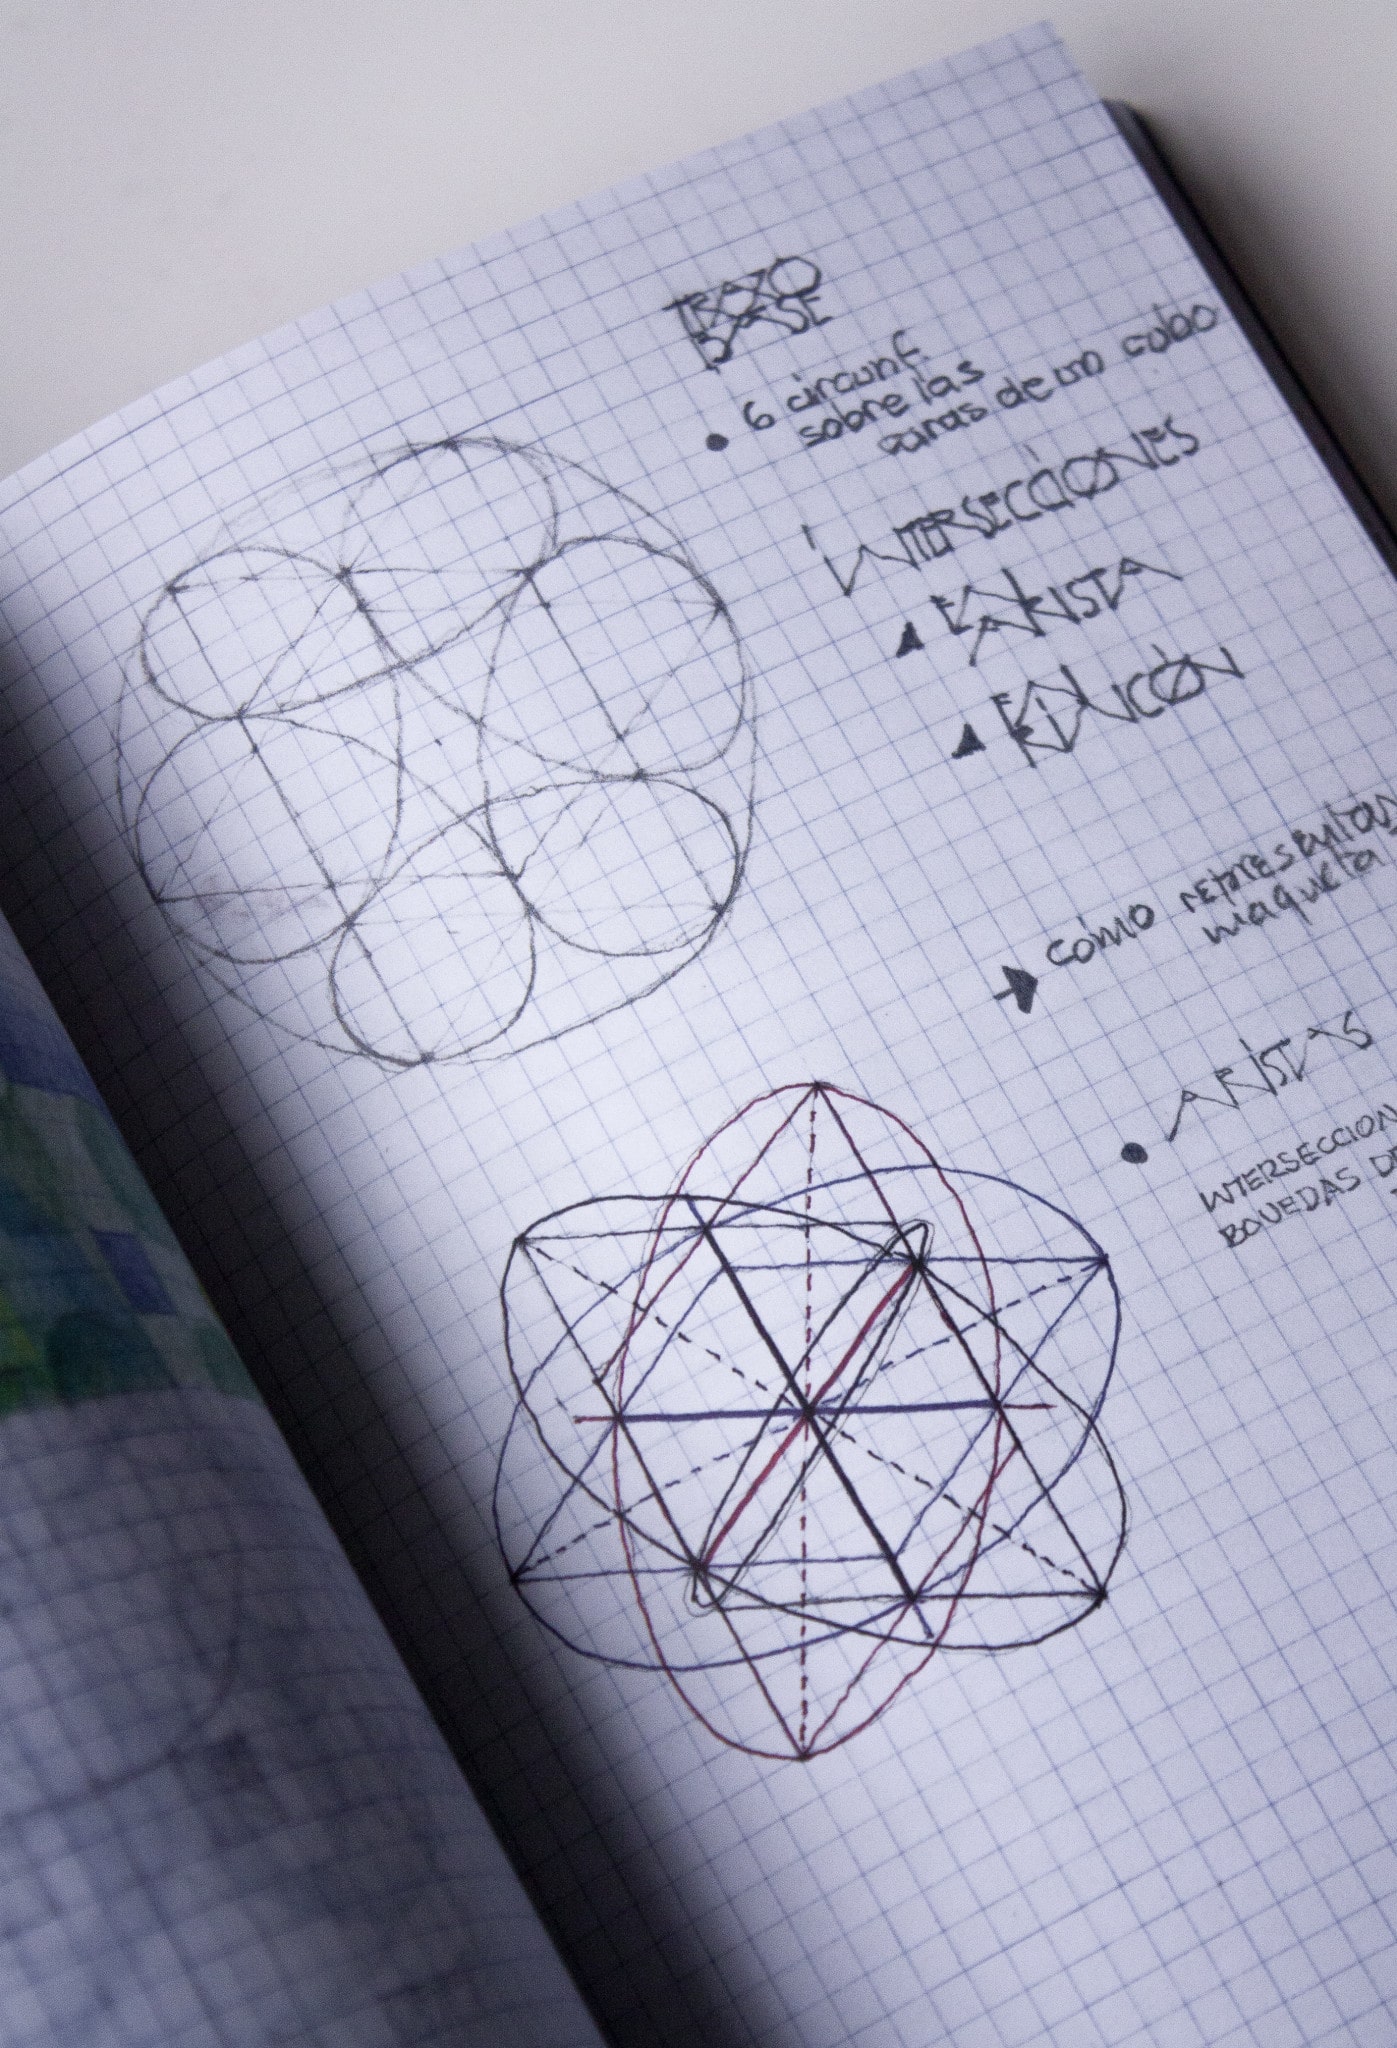 TRAZO
BASE
• 6 circunf.
sobre las
caras de un cubo
INTERSECCIONES
ARISTA
RINCÓN
→ cómo representar
maqueta
• ARISTAS
INTERSECCION
BOVEDAS DE